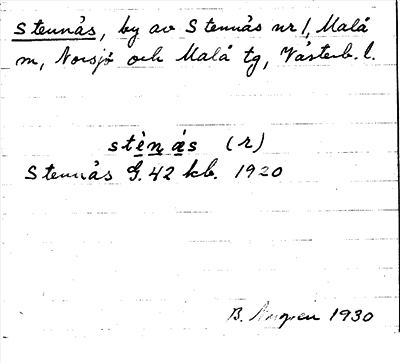 Stennäs, by av Stennäs nr 1, Malå
m, Norsjö och Malå tg, Västerb. l.
stènás (r)
Stennäs G. 42 kb. 1920
B. 1930